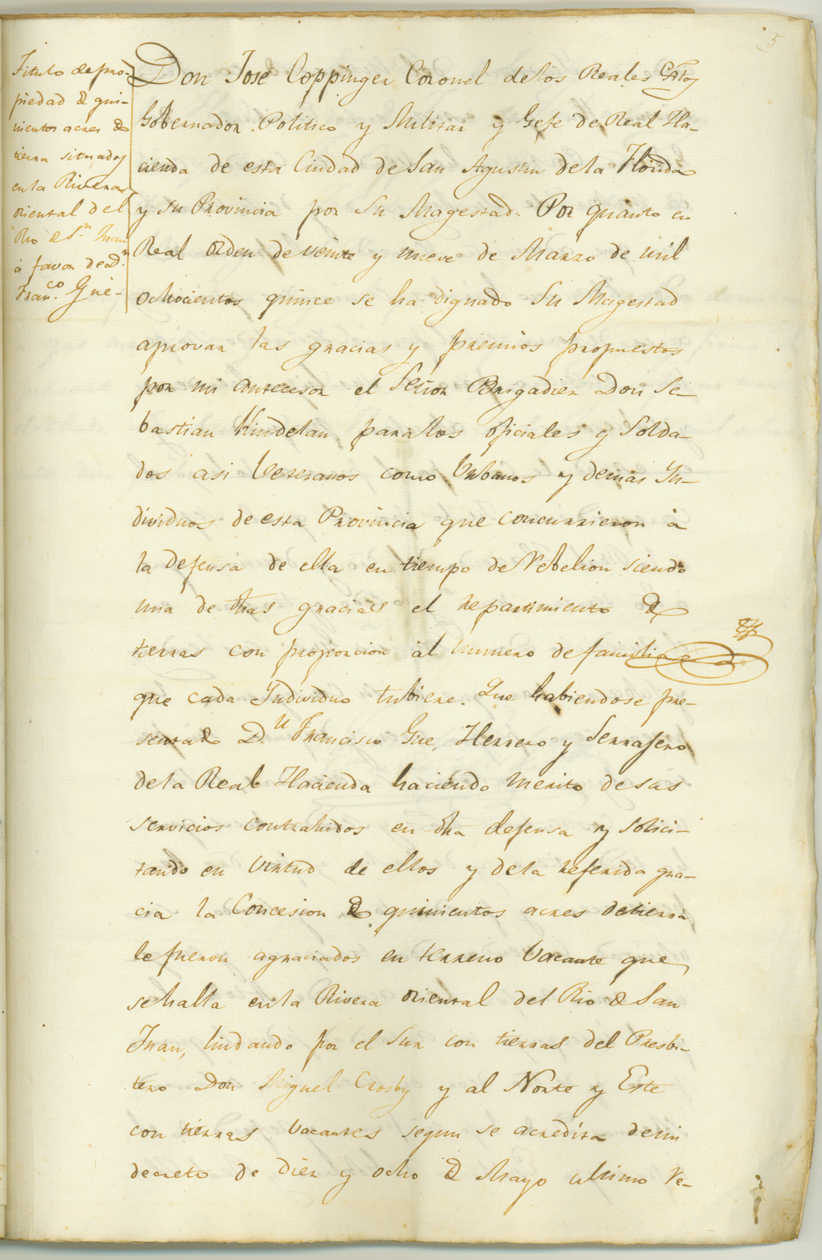 5
Titulo de pro-
piedad de qui-
nientos acres de
tierra situados
en la Rivera
oriental del
Rio de Sn. Juan
á favor de Dn.
Franco. Gué-
Don José Coppinger Coronel de los Reales Extos
Gobernador Politico y Militar y Gefe de Real Ha-
cienda de esta Ciudad de San Agustin de la Florida
y su Provincia por Su Magestad. Por quanto en
Real orden de veinte y nueve de Marzo de mil
ochocientos quince se ha dignado Su Magestad
aprovar las gracias y premios propuestos
por mi antecesor el Señor Brigadier Don Se-
bastian Kindelan para los oficiales y Solda-
dos asi Veteranos como Urbanos y demas In-
dividuos de esta Provincia que concurrieron á
la defensa de ella en tiempo de Rebelion siendo
una de dhas gracias el repartimiento de
tierras con proporcion al numero de familia
que cada Individuo tubiere. Que habiendose pre-
sentado Dn Francisco Gue, Herrero y Serrafero
de la Real Hacienda haciendo merito de sus
servicios contrahidos en dha defensa y solici-
tando en virtud de ellos y de la referida gra-
cia la Concesion de quinientos acres de tierra
le fueron agraciados en terreno Vacante que
se halla en la Rivera oriental del Rio de San
Juan, lindando por el Sur con tierras del Presbi-
tero Don Miguel Crosby y al Norte y Este
con tierras Vacantes segun se acredita de mi
decreto de diez y ocho de Mayo ultimo Ve-